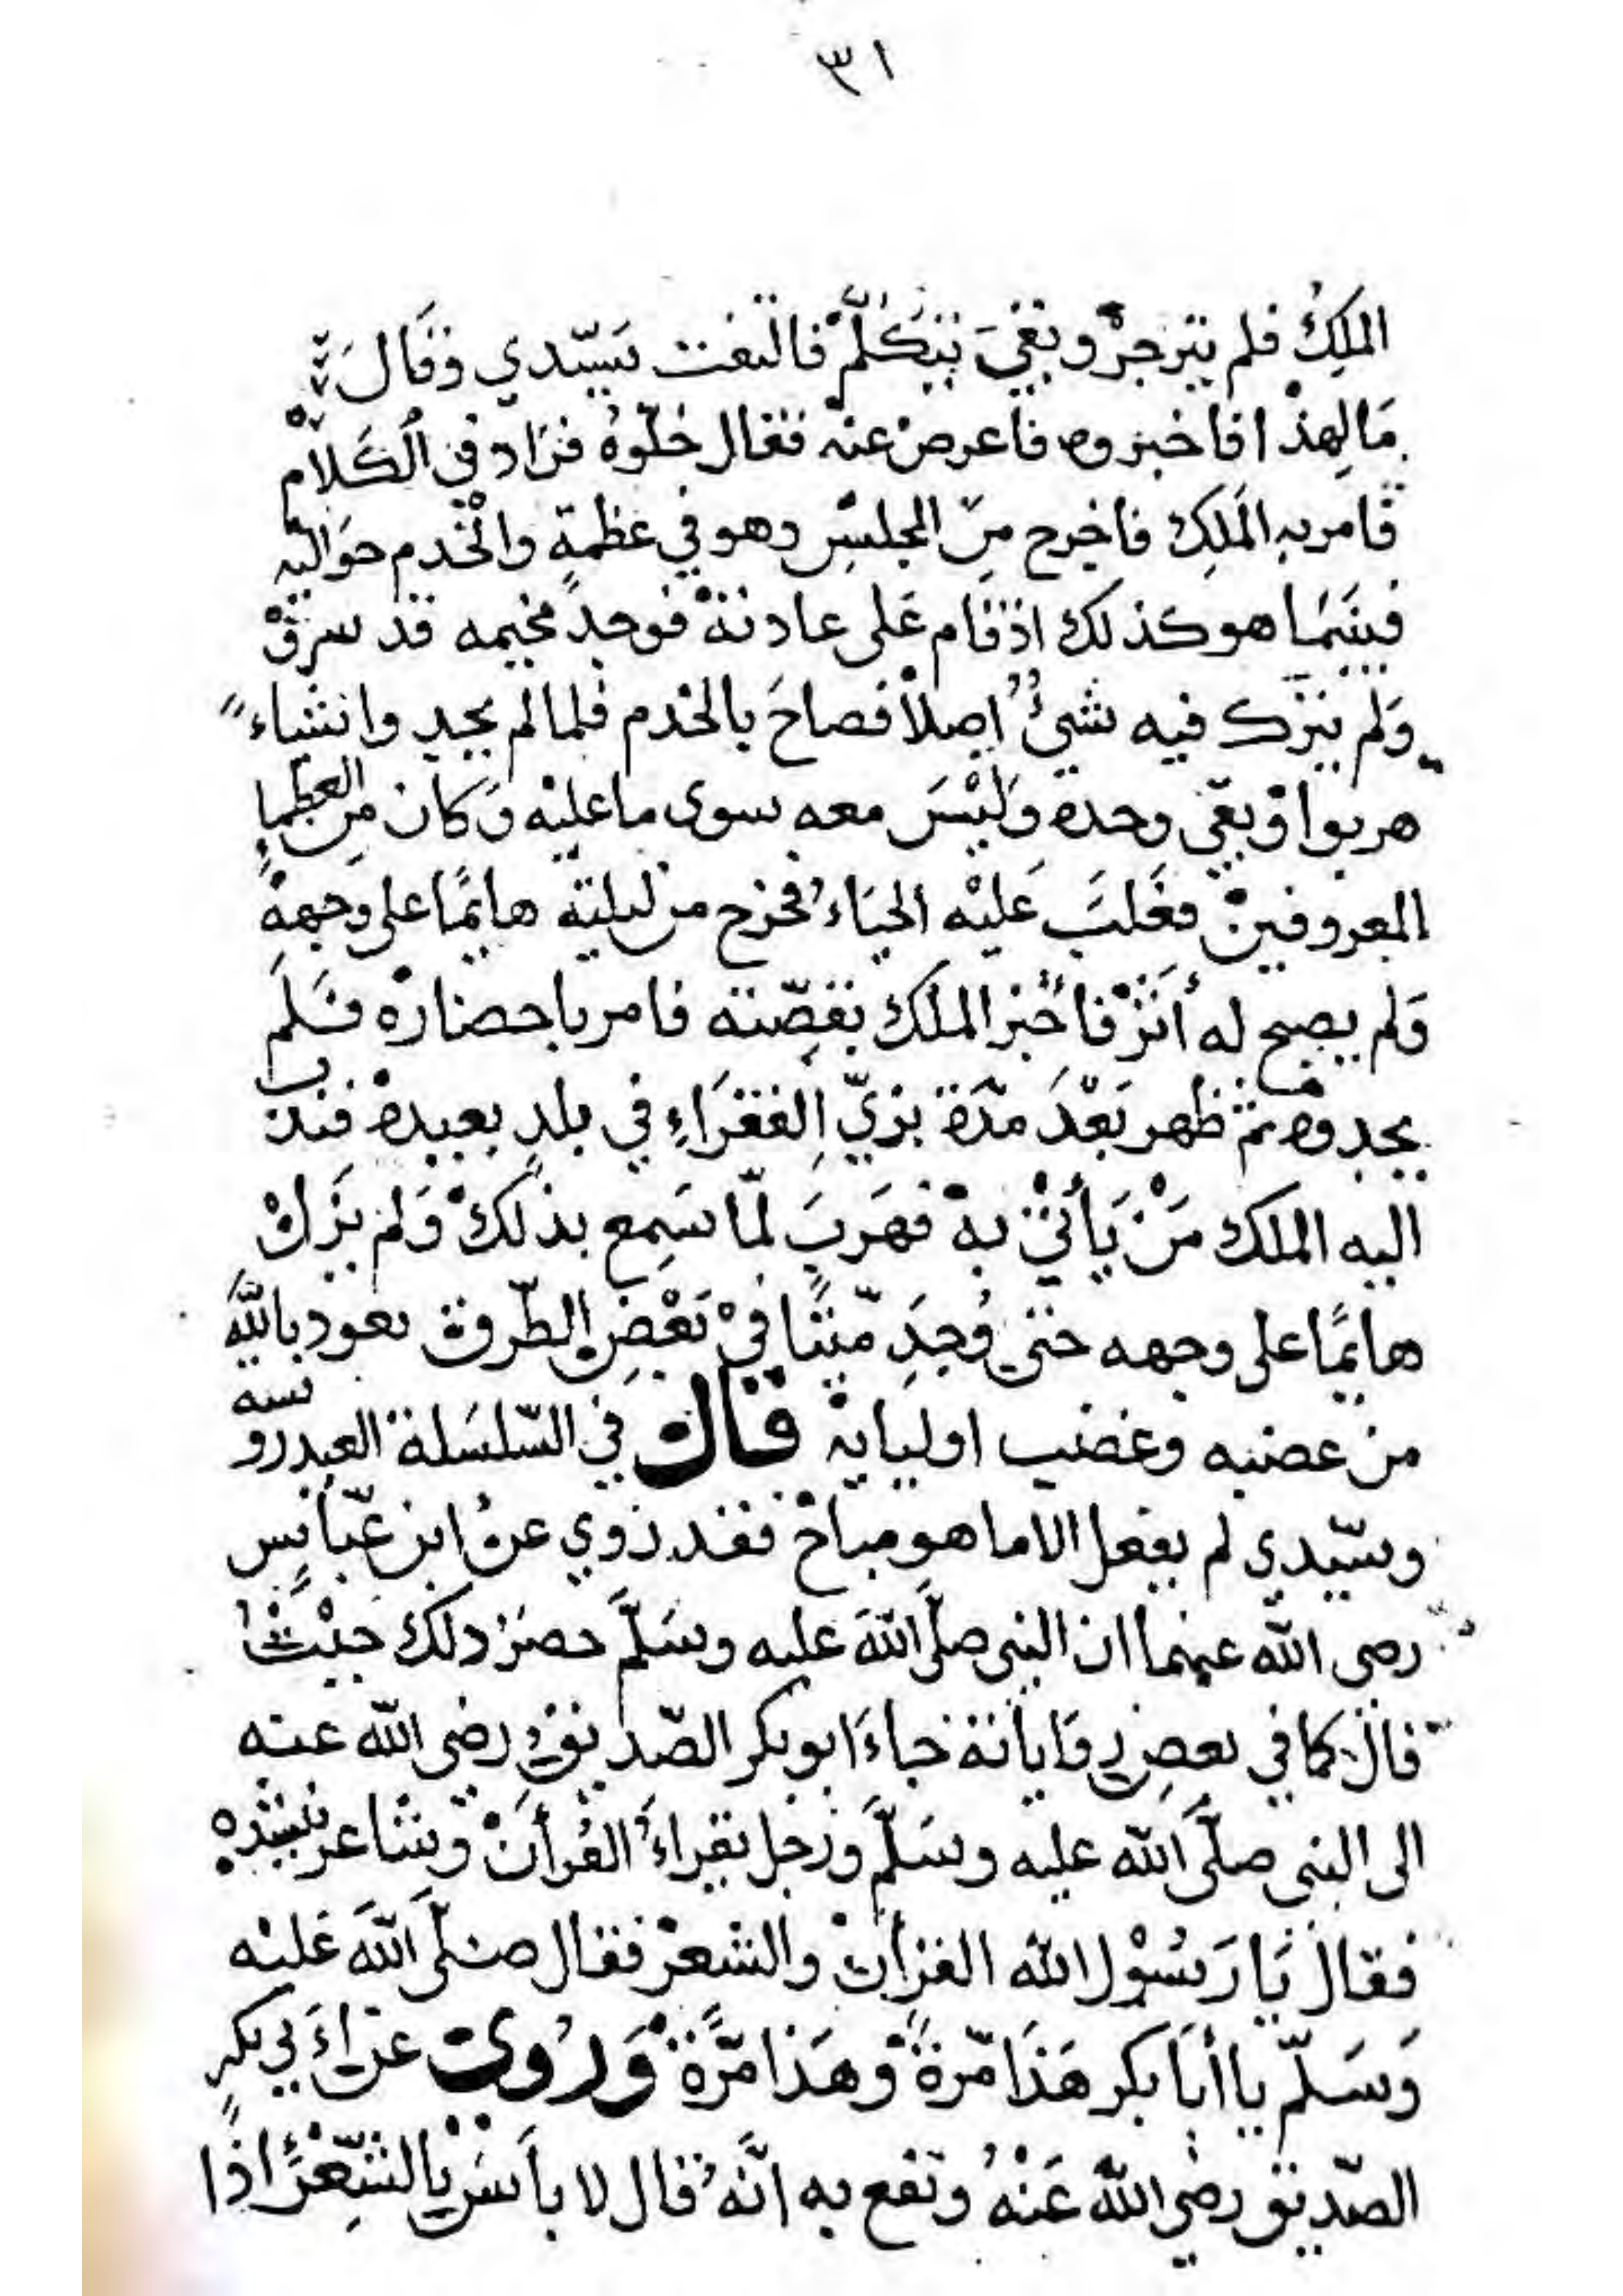 ٣١
الملكُ فلم ينزجرْ وبقيَ يتكلّم فالتفت سيّدي وقال
مَا لهذا فاخبروه فاعرض عنه فقال خلّوهُ فزاد في الكَلَام
فامر به الملك فاخرج من المجلسِ وهو في عظمةٍ والخدم حواليه
فبينما هو كذلك اذ قام على عادته فوجد مخيمه قد سرق
ولم يترك فيه شيءٌ اصلا فصاحَ بالخدم فلما لم يجد وانشاء
هربوا وبقي وحده وليْسَ معه سوى ما عليه وكان من العظماءِ
المعروفين فغلبَ عَليْه الحيَاءُ فخرج من ليلته هايمًا على وجهه
ولم يصح له أثر فاُخبر الملك بقصّته فامر باحضاره فلم
يجدوه ثم ظهر بَعْدَ مدّة بزيّ الفقرَاءِ في بلدٍ بعيده فندب
اليه الملك مَنْ يَأتي به فهَربَ لمّا سَمِع بذلكْ ولم يزلْ
هايمًا على وجهه حتى وُجِدَ ميّتًا في بَعْضِ الطّروق نعوذ باللّه
من غضبه وغضب اوليايه قال في السّلسَلة العيدروسيه
وسيّدي لم يفعل الا ما هو مباح فقد رُوي عن ابن عبّاسٍ
رضى اللّه عنهما ان النبى صلّى اللّه عليه وسَلّم حضرَ ذلك حيْثُ
قال كما في بعض رواياته جاءَ ابو بكر الصّديق رضى اللّه عنه
الى النبى صلّى اللّه عليه وسَلّم ورَجل يقراءُ القُرأن وشاعر ينشده
فقال يَا رَسُوْل اللّه القرأن والشعر فقال صَلّى اللّه عَليْه
وَسَلّم يا أبَا بكر هَذَا مرّةً وهَذَا مرّةً وَرُوي عن اَبي بكرٍ
الصّديق رضي اللّه عَنْهُ ونفع به انّهُ قال لا بأسَ بالشّعْرِ اذا